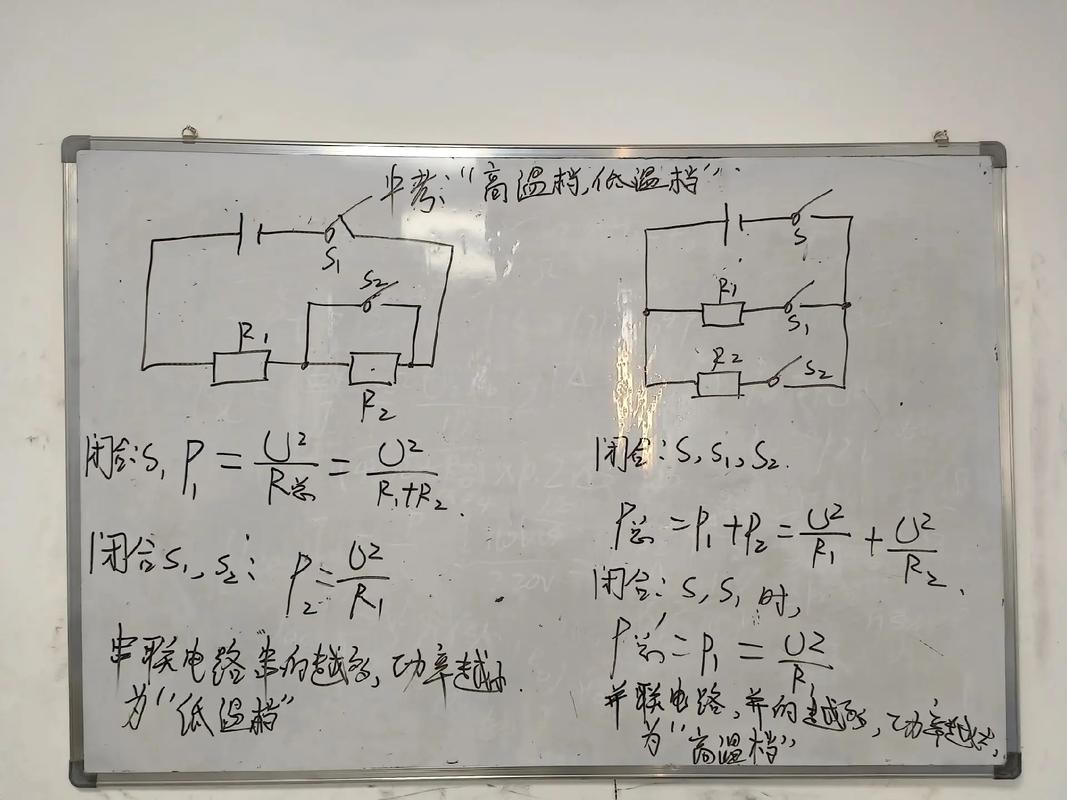 中考:“高温档,低温档”
S₁
S₂
R₁
R₂
闭合:S₁ P₁ = U²/R总 = U²/(R₁+R₂).
闭合S₁,S₂: P₂ = U²/R₁
串联电路串的越多,功率越小.
为“低温档”
S
R₁
S₁
R₂
S₂
闭合:S,S₁,S₂.
P总 = P₁ + P₂ = U²/R₁ + U²/R₂.
闭合:S,S₁时,
P总′ = P₁ = U²/R₁
并联电路,并的越多,功率越大,
为“高温档”